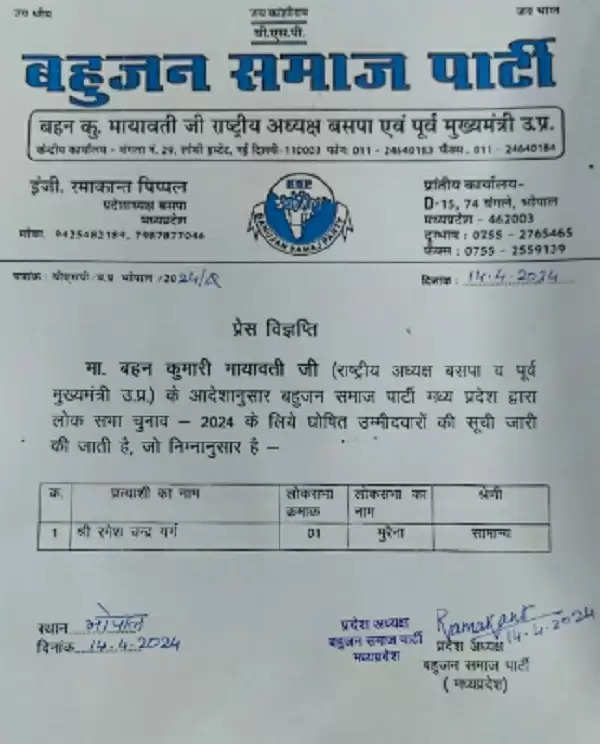 जय भीम जय कांशीराम जय भारत
बी.एस.पी.
बहुजन समाज पार्टी
बहन कु. मायावती जी राष्ट्रीय अध्यक्ष बसपा एवं पूर्व मुख्यमंत्री उ.प्र.
केन्द्रीय कार्यालय - बंगला नं. 29, लोधी इस्टेट, नई दिल्ली-110003 फोन: 011 - 24640183 फैक्स. 011 - 24640184
इंजी. रमाकान्त पिप्पल
प्रदेशाध्यक्ष बसपा
मध्यप्रदेश
मोबा. 9425482184, 7987877046
BSP
BAHUJAN SAMAJ PARTY
प्रांतीय कार्यालय-
D-15, 74 बंगले, भोपाल
मध्यप्रदेश - 462003
दूरभाष : 0755 - 2765465
फैक्स : 0755 - 2559139
पत्रांक: बीएसपी/म.प्र भोपाल/2024/Q
दिनांक : 14-4-2024
प्रेस विज्ञप्ति
मा. बहन कुमारी मायावती जी (राष्ट्रीय अध्यक्ष बसपा व पूर्व
मुख्यमंत्री उ.प्र.) के आदेशानुसार बहुजन समाज पार्टी मध्य प्रदेश द्वारा
लोक सभा चुनाव – 2024 के लिये घोषित उम्मीदवारों की सूची जारी
की जाती है, जो निम्नानुसार है –
क. प्रत्याशी का नाम लोकसभा क्रमांक लोकसभा का नाम श्रेणी
1 श्री रमेश चन्द्र गर्ग 01 मुरैना सामान्य
स्थान भोपाल
दिनांक 14-4-2024
प्रदेश अध्यक्ष
बहुजन समाज पार्टी
मध्यप्रदेश
Ramakant
14-4-2024
प्रदेश अध्यक्ष
बहुजन समाज पार्टी
( मध्यप्रदेश)